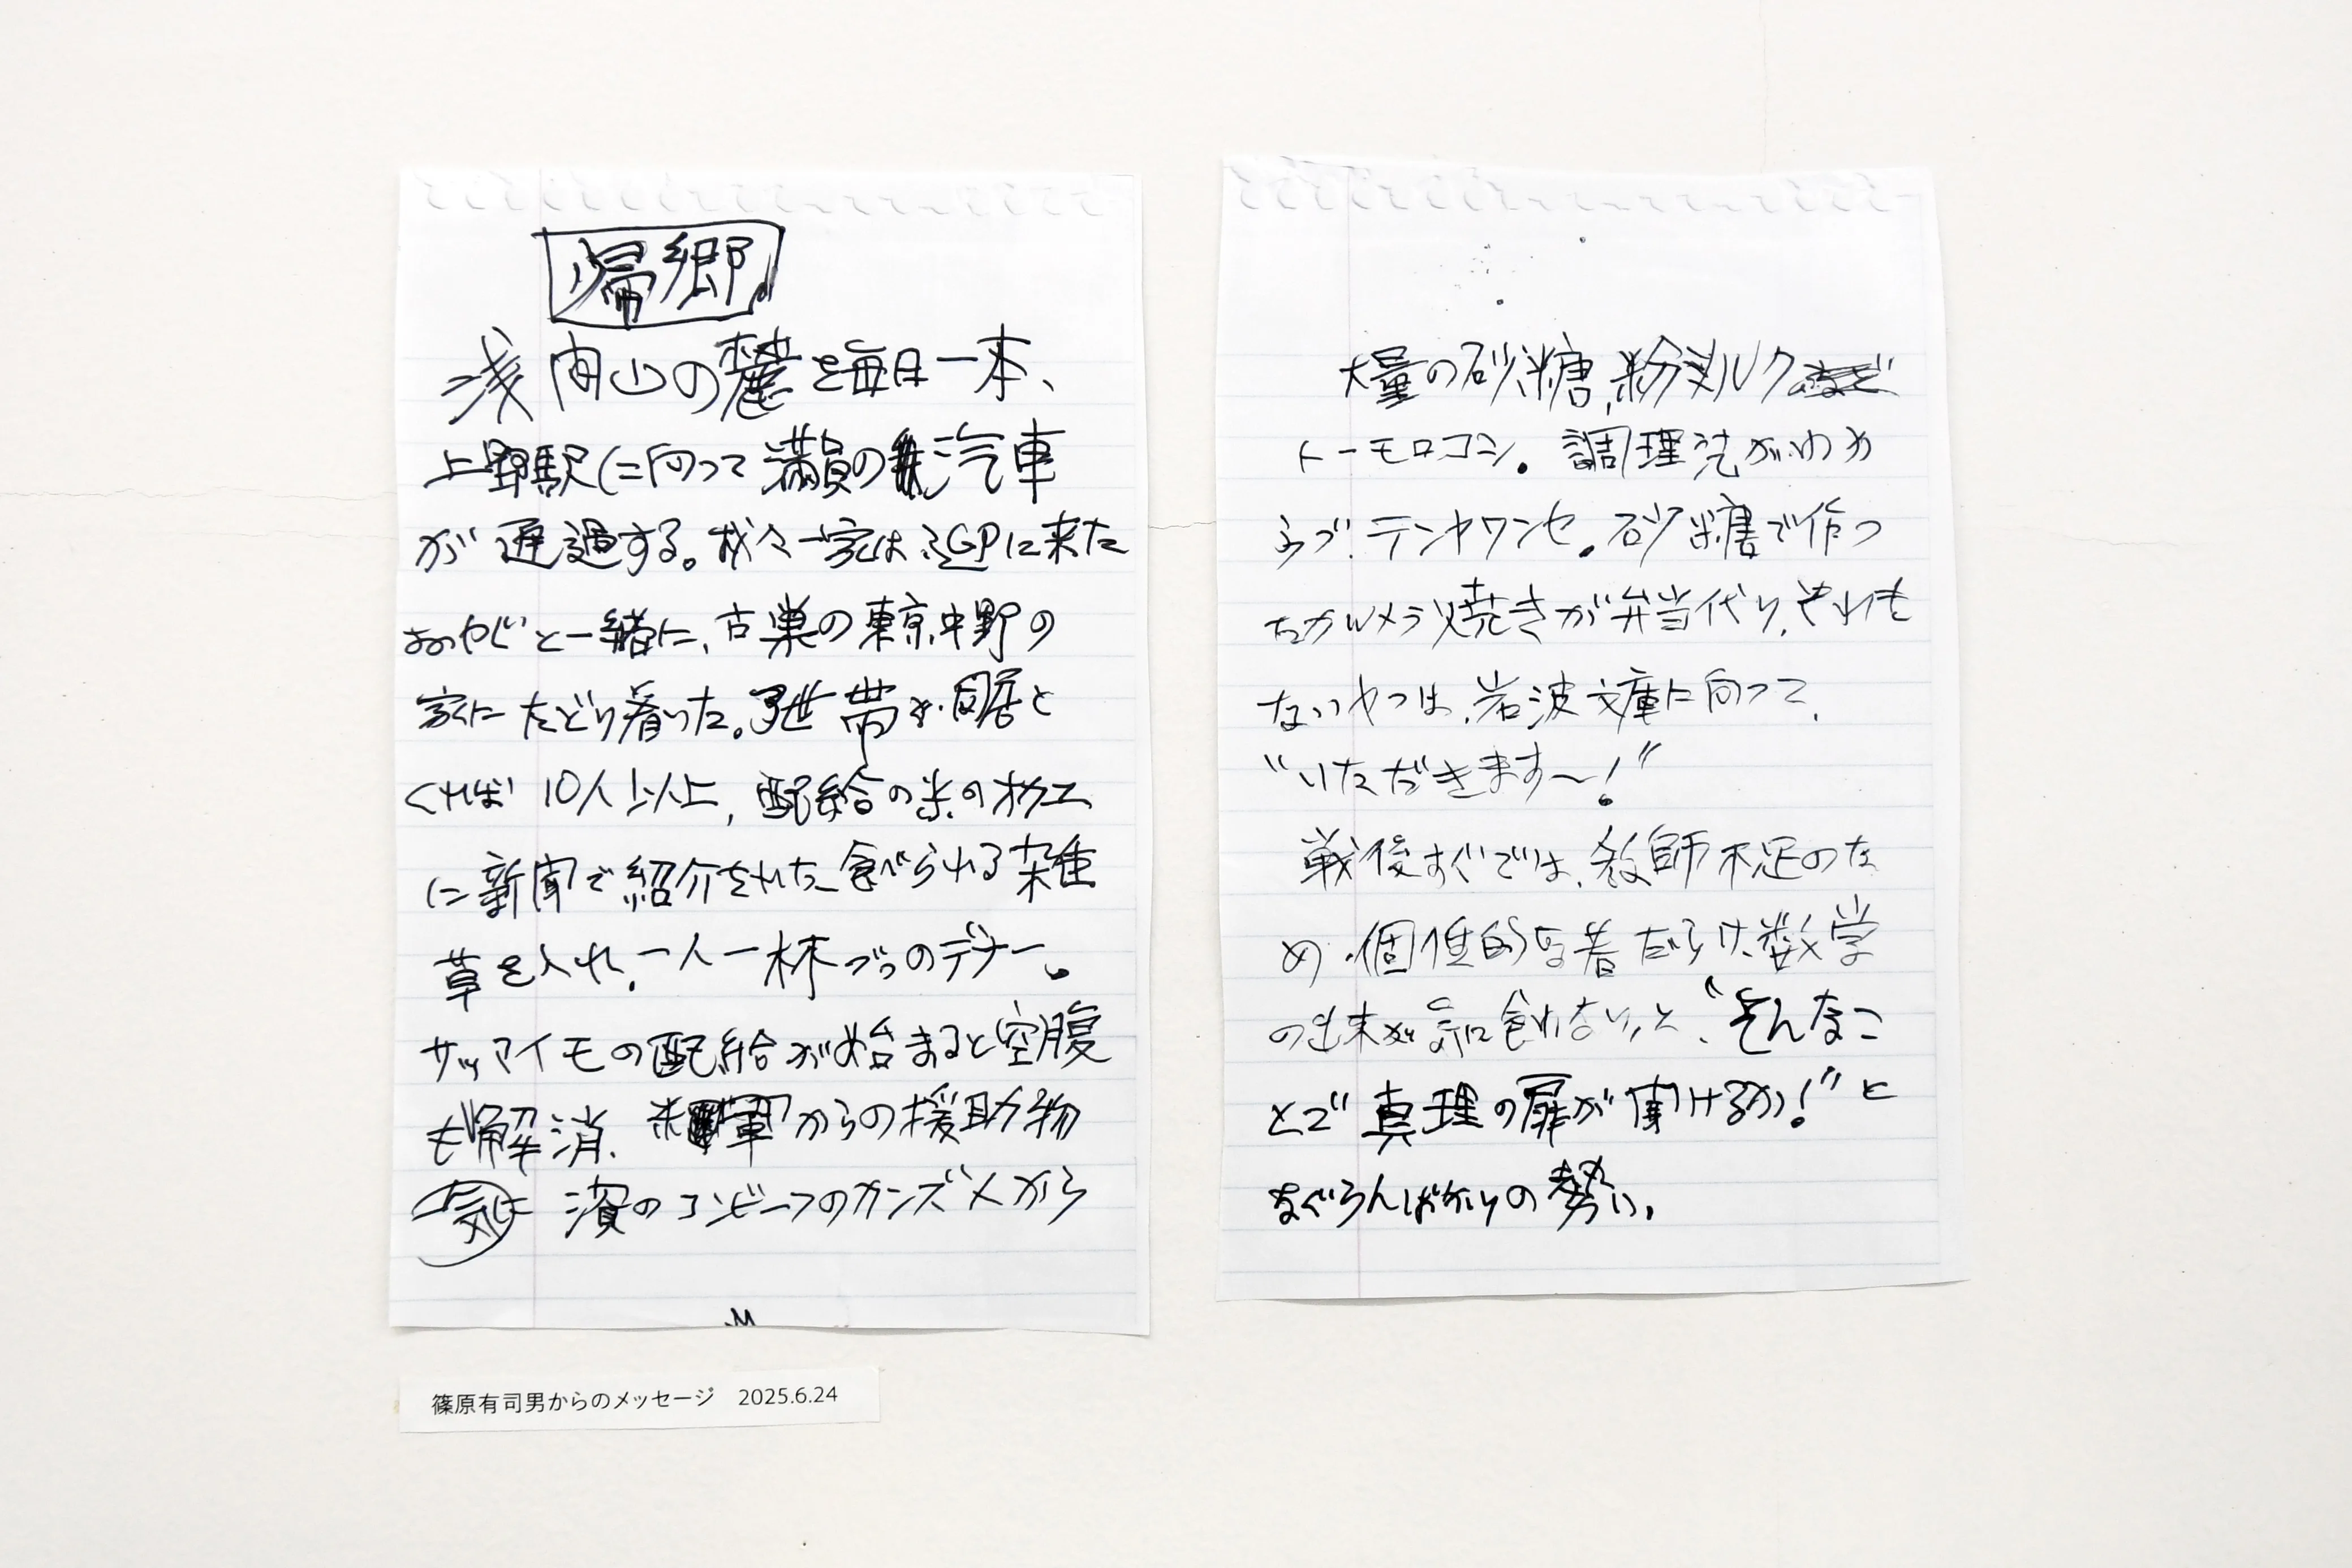 帰郷
浅間山の麓を毎日一本、
上野駅に向って満員の汽車
が通過する。我々一家は迎に来た
おやじと一緒に、古巣の東京中野の
家にたどり着いた。3世帯同居と
くれば10人以上、配給の米の
に新聞で紹介された食べられる雑
草を入れ、一人一杯づつのデナー。
サツマイモの配給が始まると空腹
も解消、米軍からの援助物
資のコンビーフのカンズメから
大量の砂糖、粉ミルク
トーモロコシ。調理法がわか
らづ、テンヤワンヤ。砂糖で作っ
たカルメラ焼きが弁当代り、それも
ないやつは、岩波文庫に向って、
“いただきます〜!”
戦後すぐでは、教師不足のた
め、個性的な者だらけ、数学
の出来が気に食わないと、“そんなこ
とで真理の扉が開けるか!”と
なぐらんばかりの勢い。
篠原有司男からのメッセージ 2025.6.24